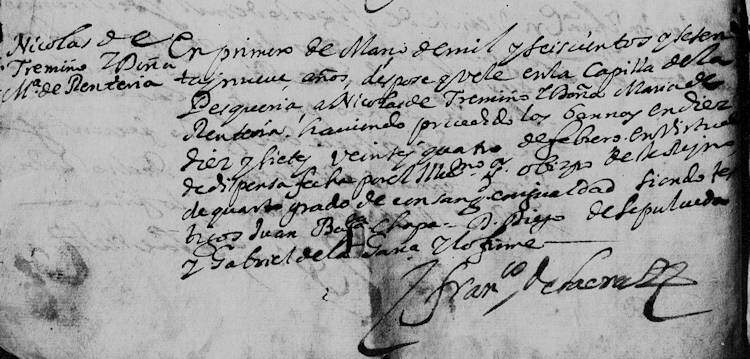 Nicolas de
Tremiño y Dñá
Mª de Renteria
En primero de Marzo de mil y seiscientos y seten
ta y nueve años, despose y vele en la Capilla de la
Pesqueria, a Nicolas de Tremiño y Doña Maria de
Renteria, haviendo procedido los bannos en diez
diez y siete y veinte y quatro de febrero, en virtud
de dispensa fecha por el Obizpo de este Reyno
de quarto grado de consanguinidad siendo tes
tigos Juan Bapta Chapa D. Diego de Sepulveda
y Gabriel de la Garza y lo firme
franco de la